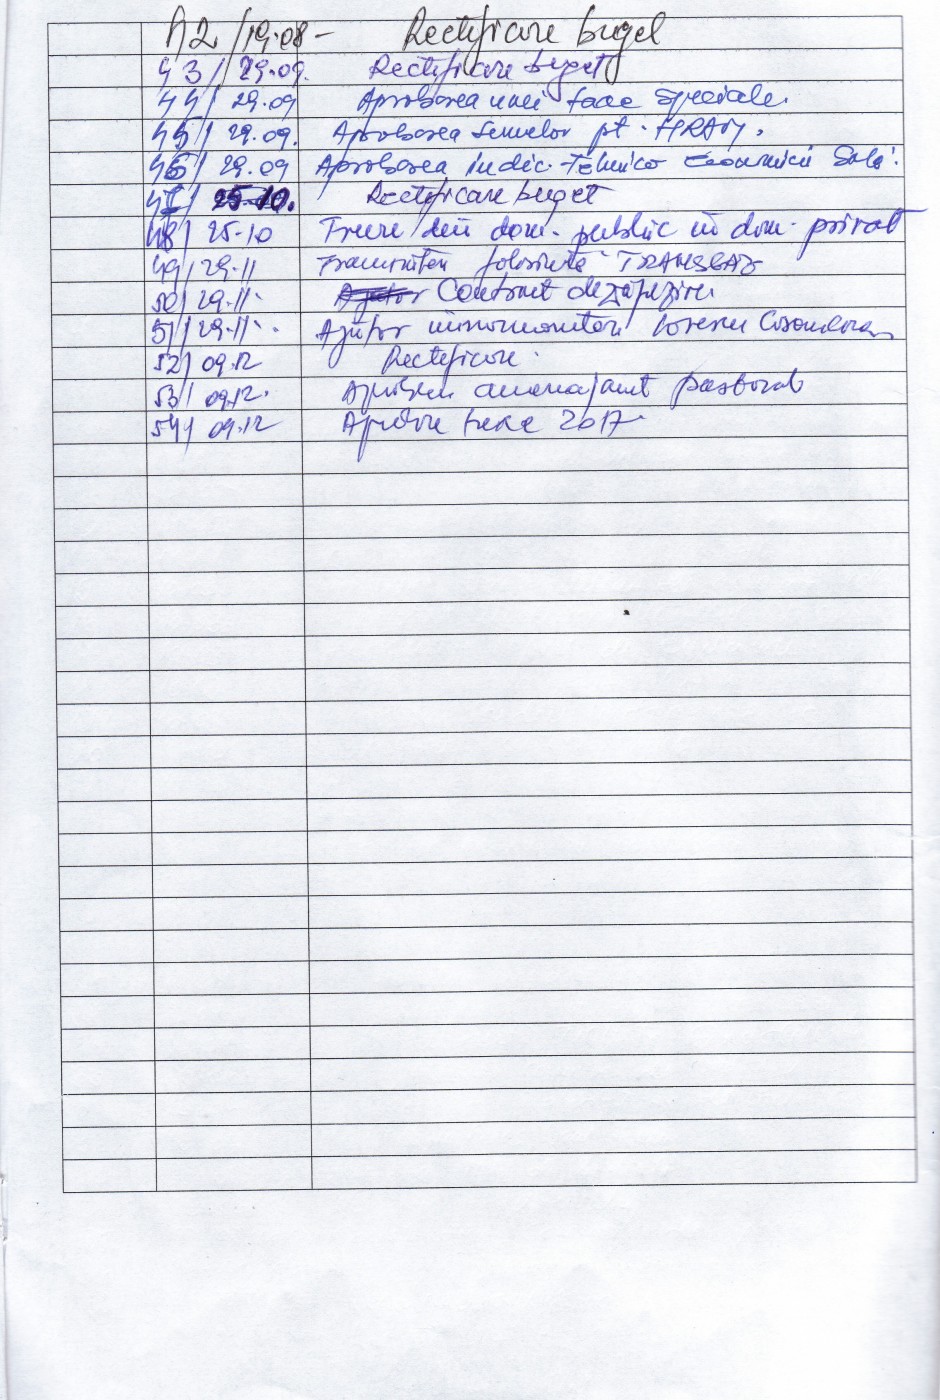 42/19.08- Rectificare buget
43/29.09. Rectificare buget
44/29.09 Aprobarea unei taxe speciale.
45/29.09. Aprobarea sumelor pt.
46/29.09 Aprobarea indic. Tehnico Economici Sală.
47/25.10. Rectificare buget
48/25.10 Trece din dom. public in dom. privat
49/29.11 folosință TRANSGAZ
50/29.11. Contract dezăpezire
51/29.11. Ajutor
52/09.12 Rectificare.
53/09.12. amenajament pastoral
54/09.12 taxe 2017